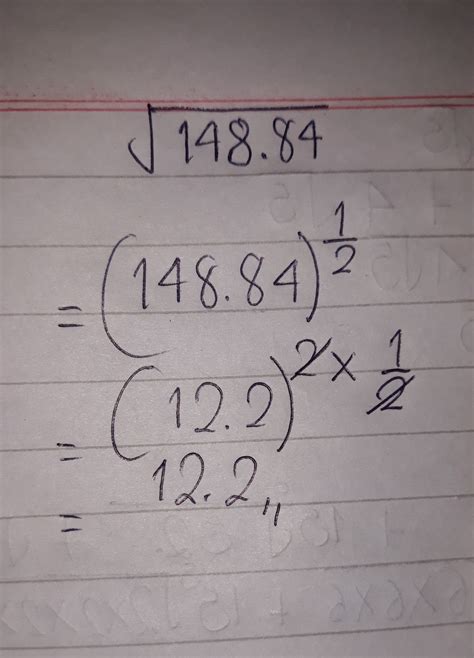 √148.84
= (148.84)^(1/2)
= (12.2)^(2 × 1/2)
= 12.2,,